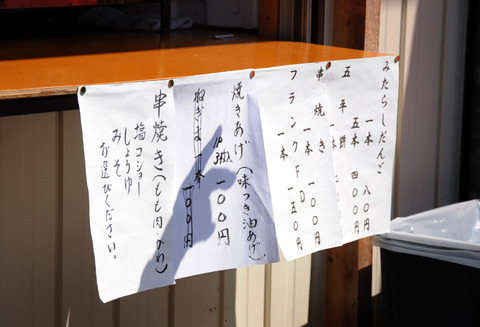 みたらしだんご
一本 八〇円
五本 四〇〇円
五平餅
串焼き
一本 一〇〇円
フランクFD
一本 一五〇円
焼きあげ(味つき油あげ)
3枚入 一〇〇円
ねぎま 一本 一〇〇円
串焼き(もも肉・かわ)
塩コショー
しょうゆ
みそ
お選びください。